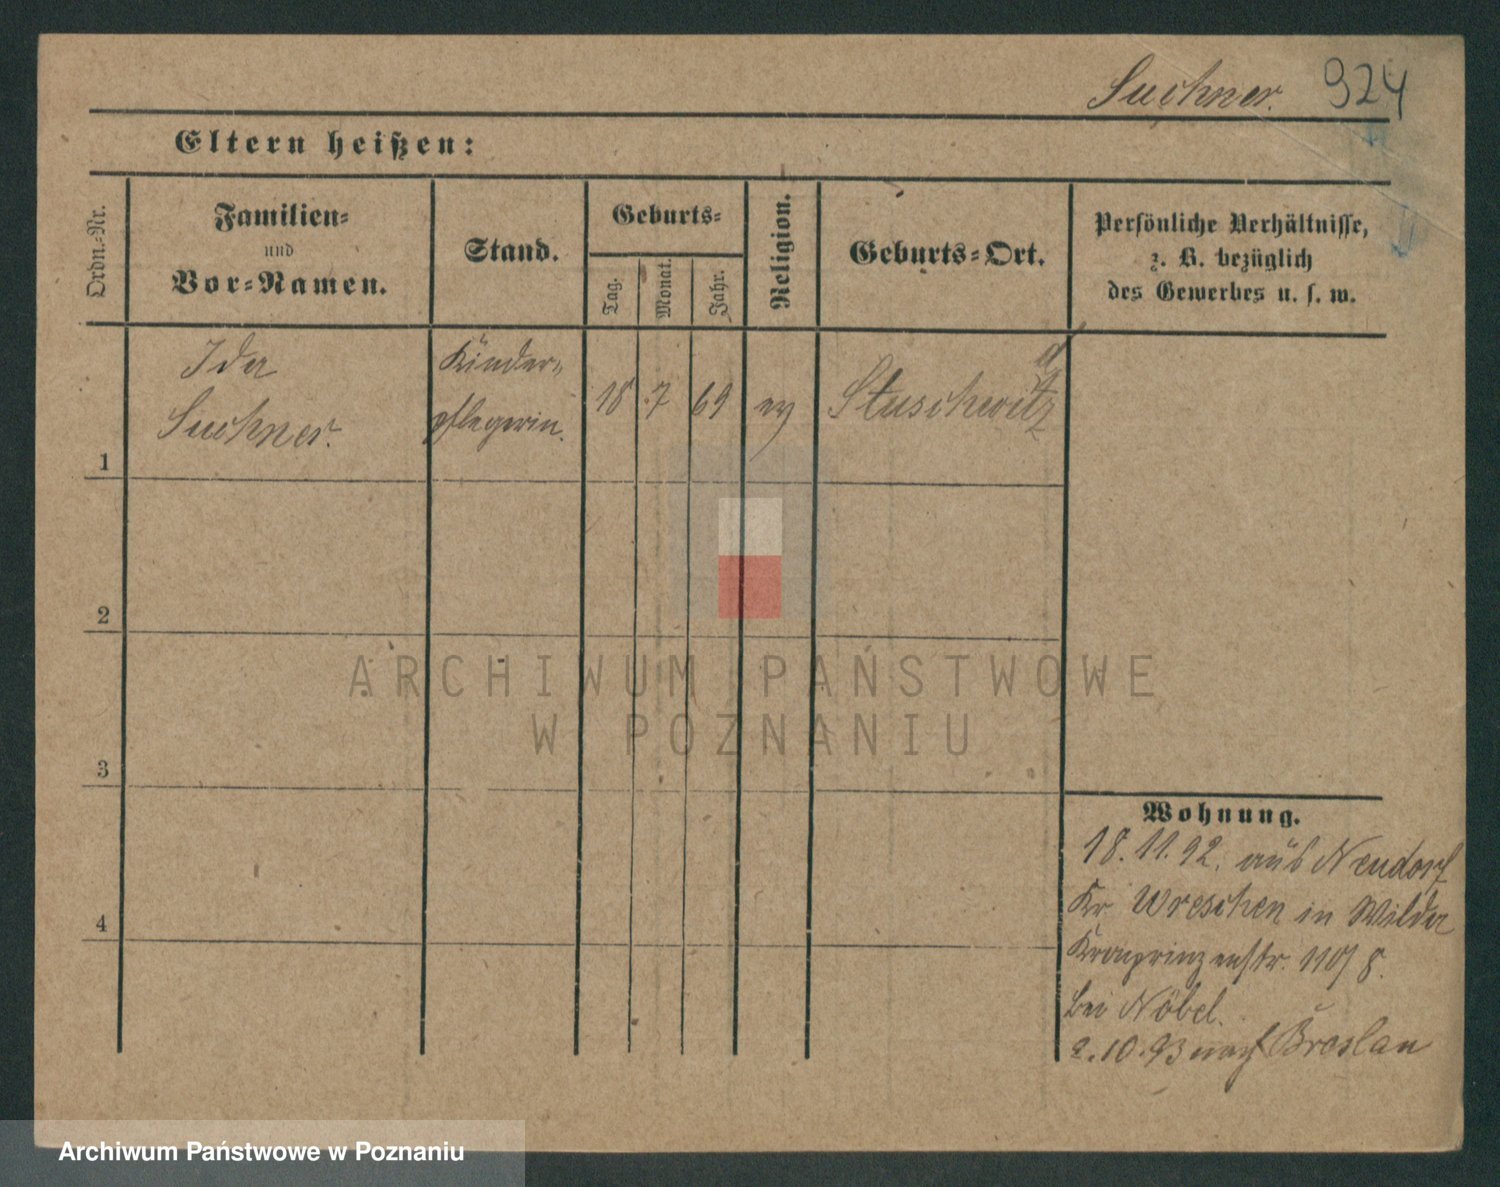 Suchner. 924
Eltern heißen:
Ordn.-Nr.
Familien-
und
Vor-Namen.
Stand.
Geburts-
Tag.
Monat.
Jahr.
Religion.
Geburts-Ort.
Persönliche Verhältnisse,
z. B. bezüglich
des Gewerbes u. s. w.
Ida
Suchner.
Kinder-
pflegerin.
18 7 69 ev Stuschwitz
1
2
3
4
ARCHIWUM PAŃSTWOWE
W POZNANIU
Wohnung.
18. 11. 92. aus Neudorf
Kr Wreschen in Wilda
Kronprinzenstr. 110/8.
bei Nöbel.
2. 10. 93 nach Breslau
Archiwum Państwowe w Poznaniu